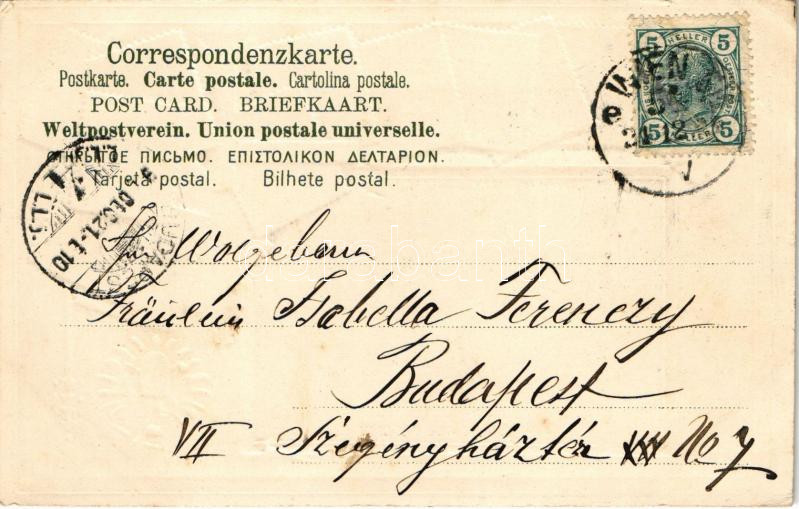 Correspondenzkarte.
Postkarte. Carte postale. Cartolina postale.
POST CARD. BRIEFKAART.
Weltpostverein. Union postale universelle.
ОТКРЫТОЕ ПИСЬМО. ΕΠΙΣΤΟΛΙΚΟΝ ΔΕΛΤΑΡΙΟΝ.
Tarjeta postal. Bilhete postal.
5 HELLER 5
5 HELLER 5
WIEN
21 12
darabanth
Wolgeborn
Fräulein Isabella Ferenczy
Budapest
VII Szegényháztér No 7